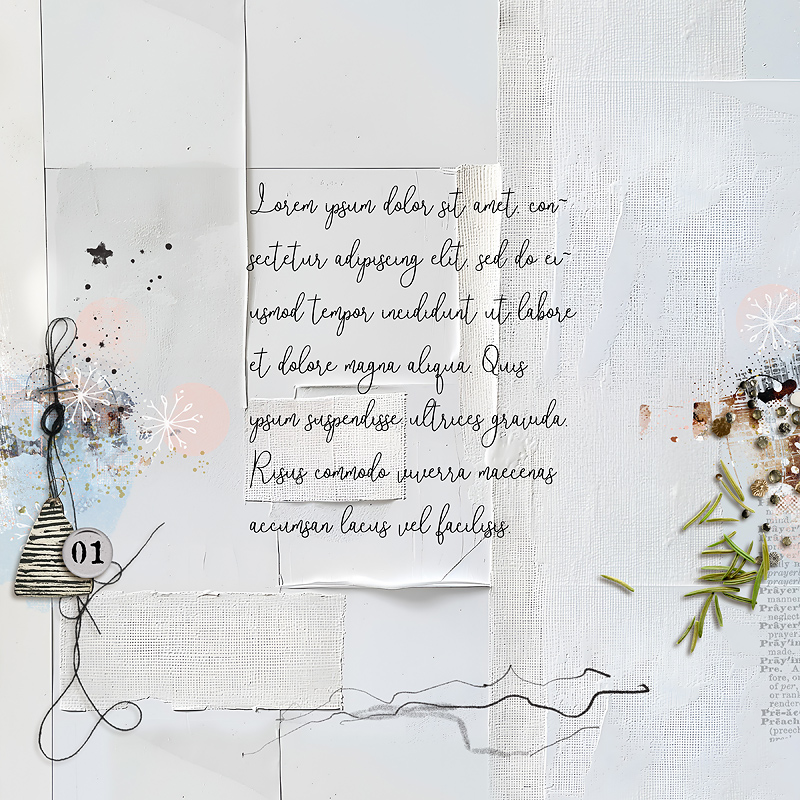 Lorem ipsum dolor sit amet, con-
sectetur adipiscing elit, sed do ei-
usmod tempor incididunt ut labore
et dolore magna aliqua. Quis
ipsum suspendisse ultrices gravida.
Risus commodo viverra maecenas
accumsan lacus vel facilisis.
01
mind.
Only
prayer
Prāyer
manner
neglect
Prāyer
prayer.
Prāy'in
made.
Prāy'in
Pre. A
fore, o
of per,
or rank
render
Prē-ac
Prēach
(preec